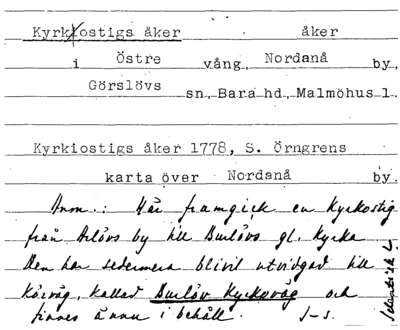 Kyrkiostigs åker åker
i Östre vång, Nordanå by,
Görslövs sn, Bara hd, Malmöhus l.
Kyrkiostigs åker 1778, S. Örngrens
karta över Nordanå by.
Anm.: Här framgick en Kyrkostig
från Arlövs by till Burlövs gl. Kyrka
Den har sedermera blivit utvidgad till
körväg, kallad Burlöv Kyrkoväg och
finnes ännu i behåll. J-s.